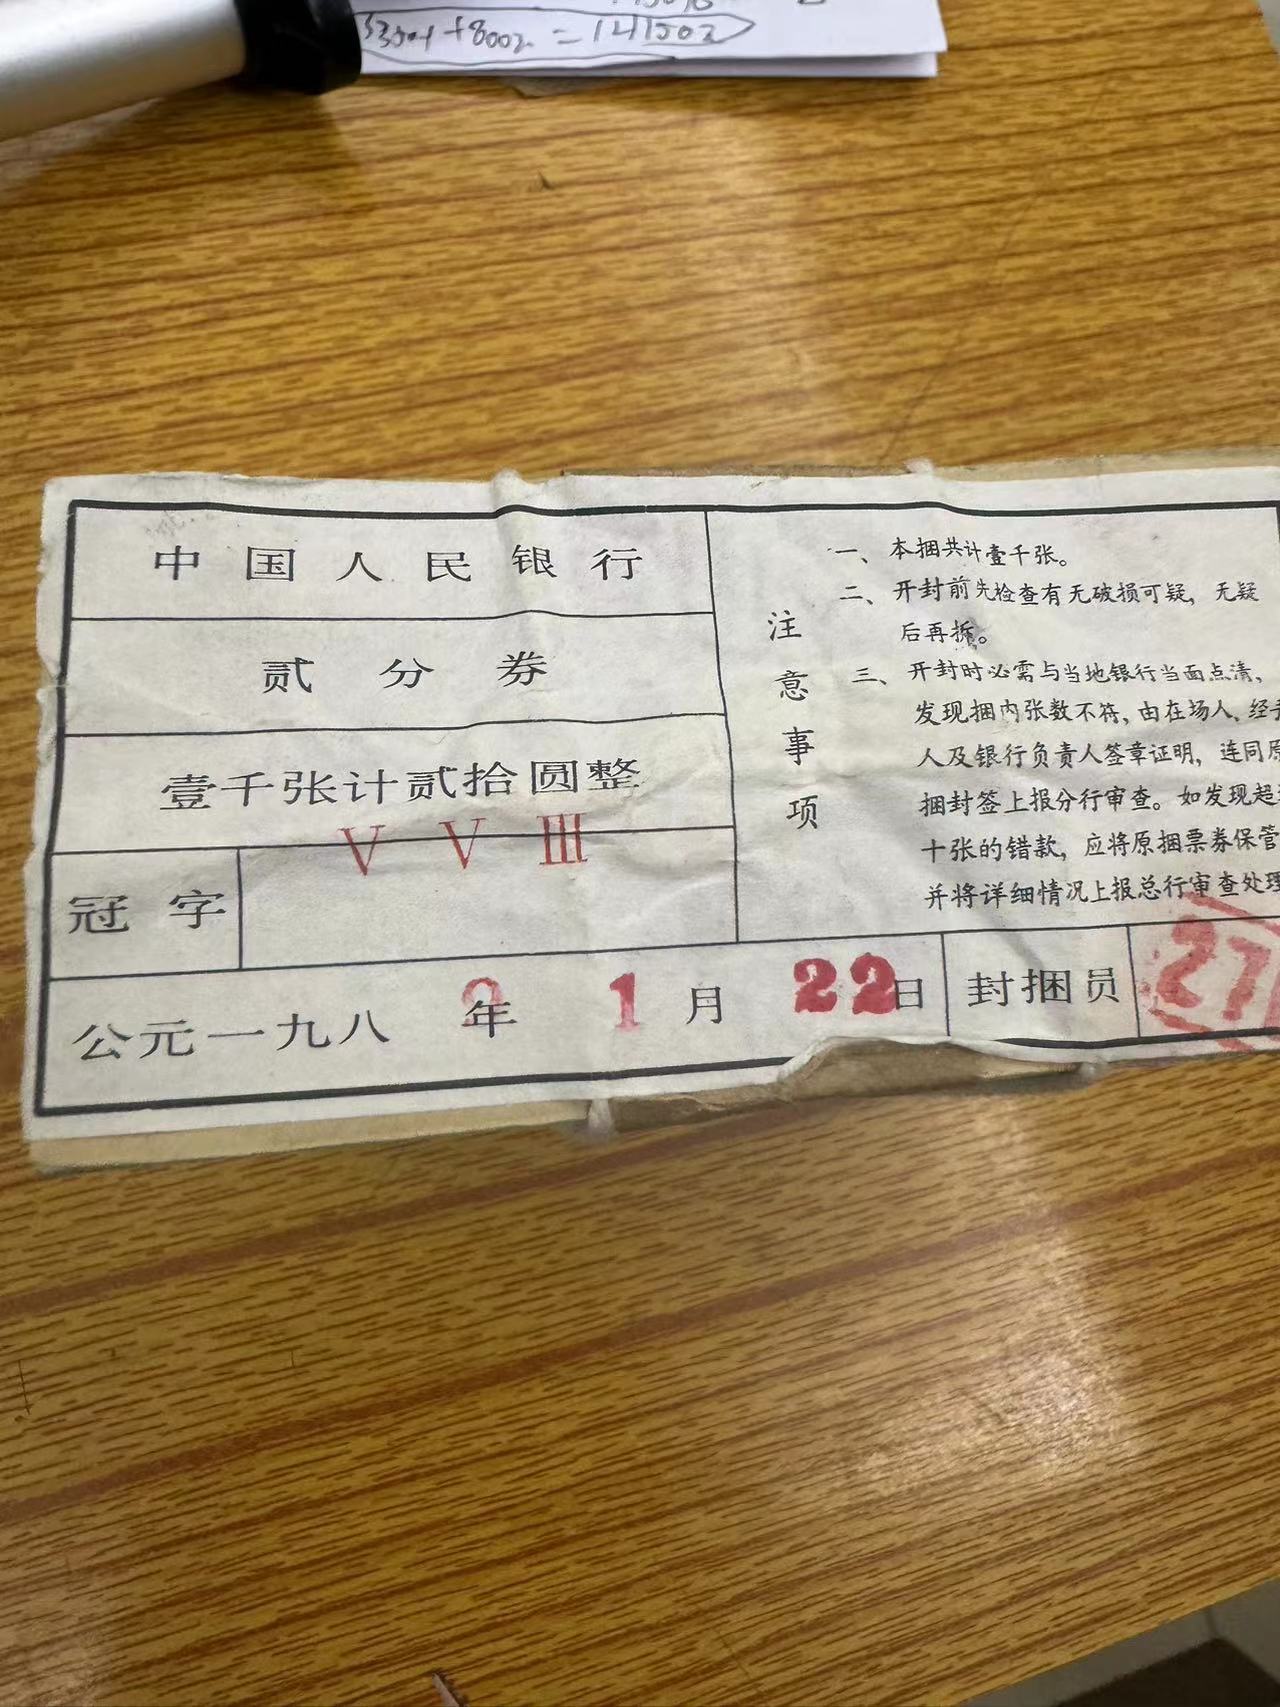 +8002 = 141502
中国人民银行
贰分券
壹千张计贰拾圆整
冠字 V V III
公元一九八 年 1 月 22 日
封捆员 27
注意事项
一、本捆共计壹千张。
二、开封前先检查有无破损可疑，无疑
后再拆。
三、开封时必需与当地银行当面点清，
发现捆内张数不符，由在场人、经
人及银行负责人签章证明，连同原
捆封签上报分行审查。如发现超
十张的错款，应将原捆票券保管
并将详细情况上报总行审查处理